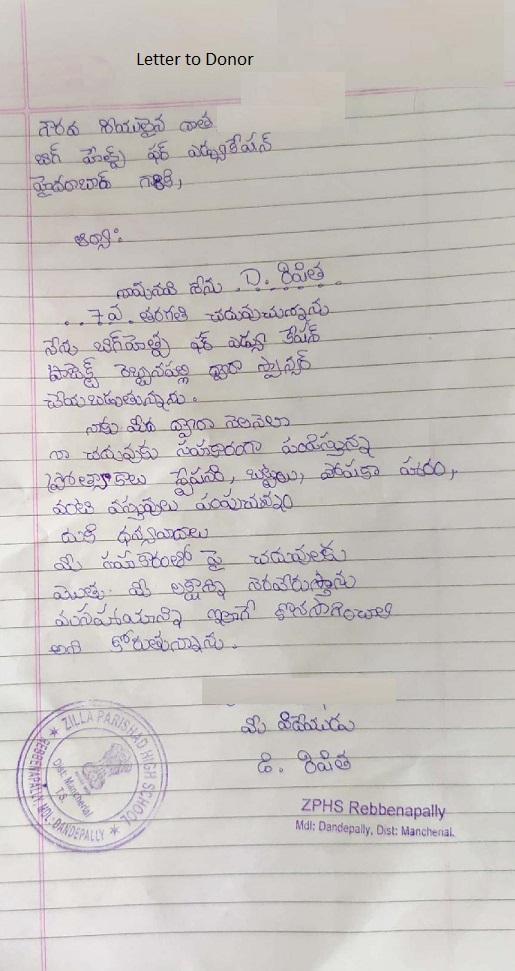 Letter to Donor
గౌరవ నీయులైన దాత
బిగ్ హెల్ప్ ఫర్ ఎడ్యుకేషన్
హైదరాబాద్ గారికి,
ఆర్యా:
నమస్తే నేను D. రిషిత
7 వ తరగతి చదువుచున్నాను
నేను బిగ్‌హెల్ప్ ఫర్ ఎడ్యూ కేషన్
ప్రాజెక్ట్ రెబ్బనపల్లి ద్వారా స్పాన్సర్
చేయబడుతున్నాను.
నాకు మీరు ద్వారా నెలనెలా
నా చదువుకు సహకారంగా పంపిస్తున్న
ప్రోత్సాకాలు స్టేషనరి, బట్టలు, పోషకా హారం,
వంటి వస్తువులు పంపుచున్నం
దుకే ధన్యవాదాలు
మీ సహకారంతో పై చదువులకు
మీ లక్ష్యాన్ని నెరవేరుస్తాను
మీసహాయాన్ని ఇలాగే కొనసాగించాలి
అని కోరుతున్నాను.
మీ విదేయుడు
డి. రిషిత
ZILLA PARISHAD HIGH SCHOOL
REBBENAPALLY, MDL. DANDEPALLY
Dist: Mancherial
T.S.
ZPHS Rebbenapally
Mdl: Dandepally, Dist: Mancherial.